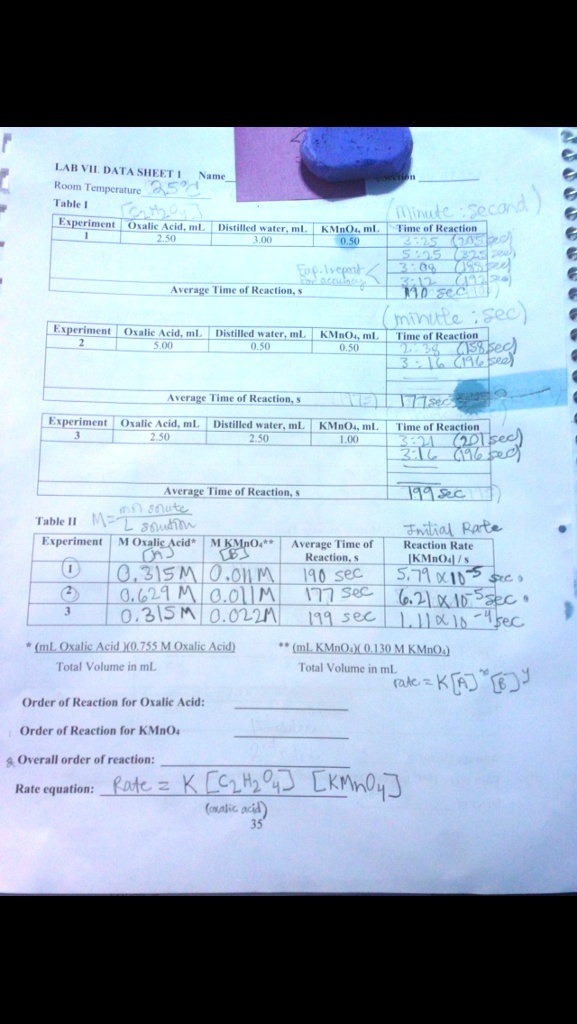 LAB VII. DATA SHEET 1 Name
Section
Room Temperature 25°
Table I
(minute : second)
Experiment Oxalic Acid, mL Distilled water, mL KMnO₄, mL Time of Reaction
1 2.50 3.00 0.50 3:25 (205 sec)
5:25 (325 sec)
3:08
Exp. 1 repeat 3:12 (192 sec)
for accuracy
Average Time of Reaction, s 190 sec
(minute : sec)
Experiment Oxalic Acid, mL Distilled water, mL KMnO₄, mL Time of Reaction
2 5.00 0.50 0.50 2:38 (158 sec)
3:16 (196 sec)
Average Time of Reaction, s 177 sec
Experiment Oxalic Acid, mL Distilled water, mL KMnO₄, mL Time of Reaction
3 2.50 2.50 1.00 3:21 (201 sec)
3:16 (196 sec)
Average Time of Reaction, s 199 sec
Table II M = mol solute / L solution
Initial Rate
Experiment M Oxalic Acid* [A] M KMnO₄** [B] Average Time of Reaction, s Reaction Rate [KMnO₄] / s
1 0.315 M 0.011 M 190 sec 5.79 x 10⁻⁵ sec
2 0.629 M 0.011 M 177 sec 6.21 x 10⁻⁵ sec
3 0.315 M 0.022 M 199 sec 1.11 x 10⁻⁴ sec
* (mL Oxalic Acid )(0.755 M Oxalic Acid) ** (mL KMnO₄)( 0.130 M KMnO₄)
Total Volume in mL Total Volume in mL
rate = K[A]ˣ [B]ʸ
Order of Reaction for Oxalic Acid:
Order of Reaction for KMnO₄
Overall order of reaction:
Rate equation: Rate = K [C₂H₂O₄] [KMnO₄]
(oxalic acid)
35